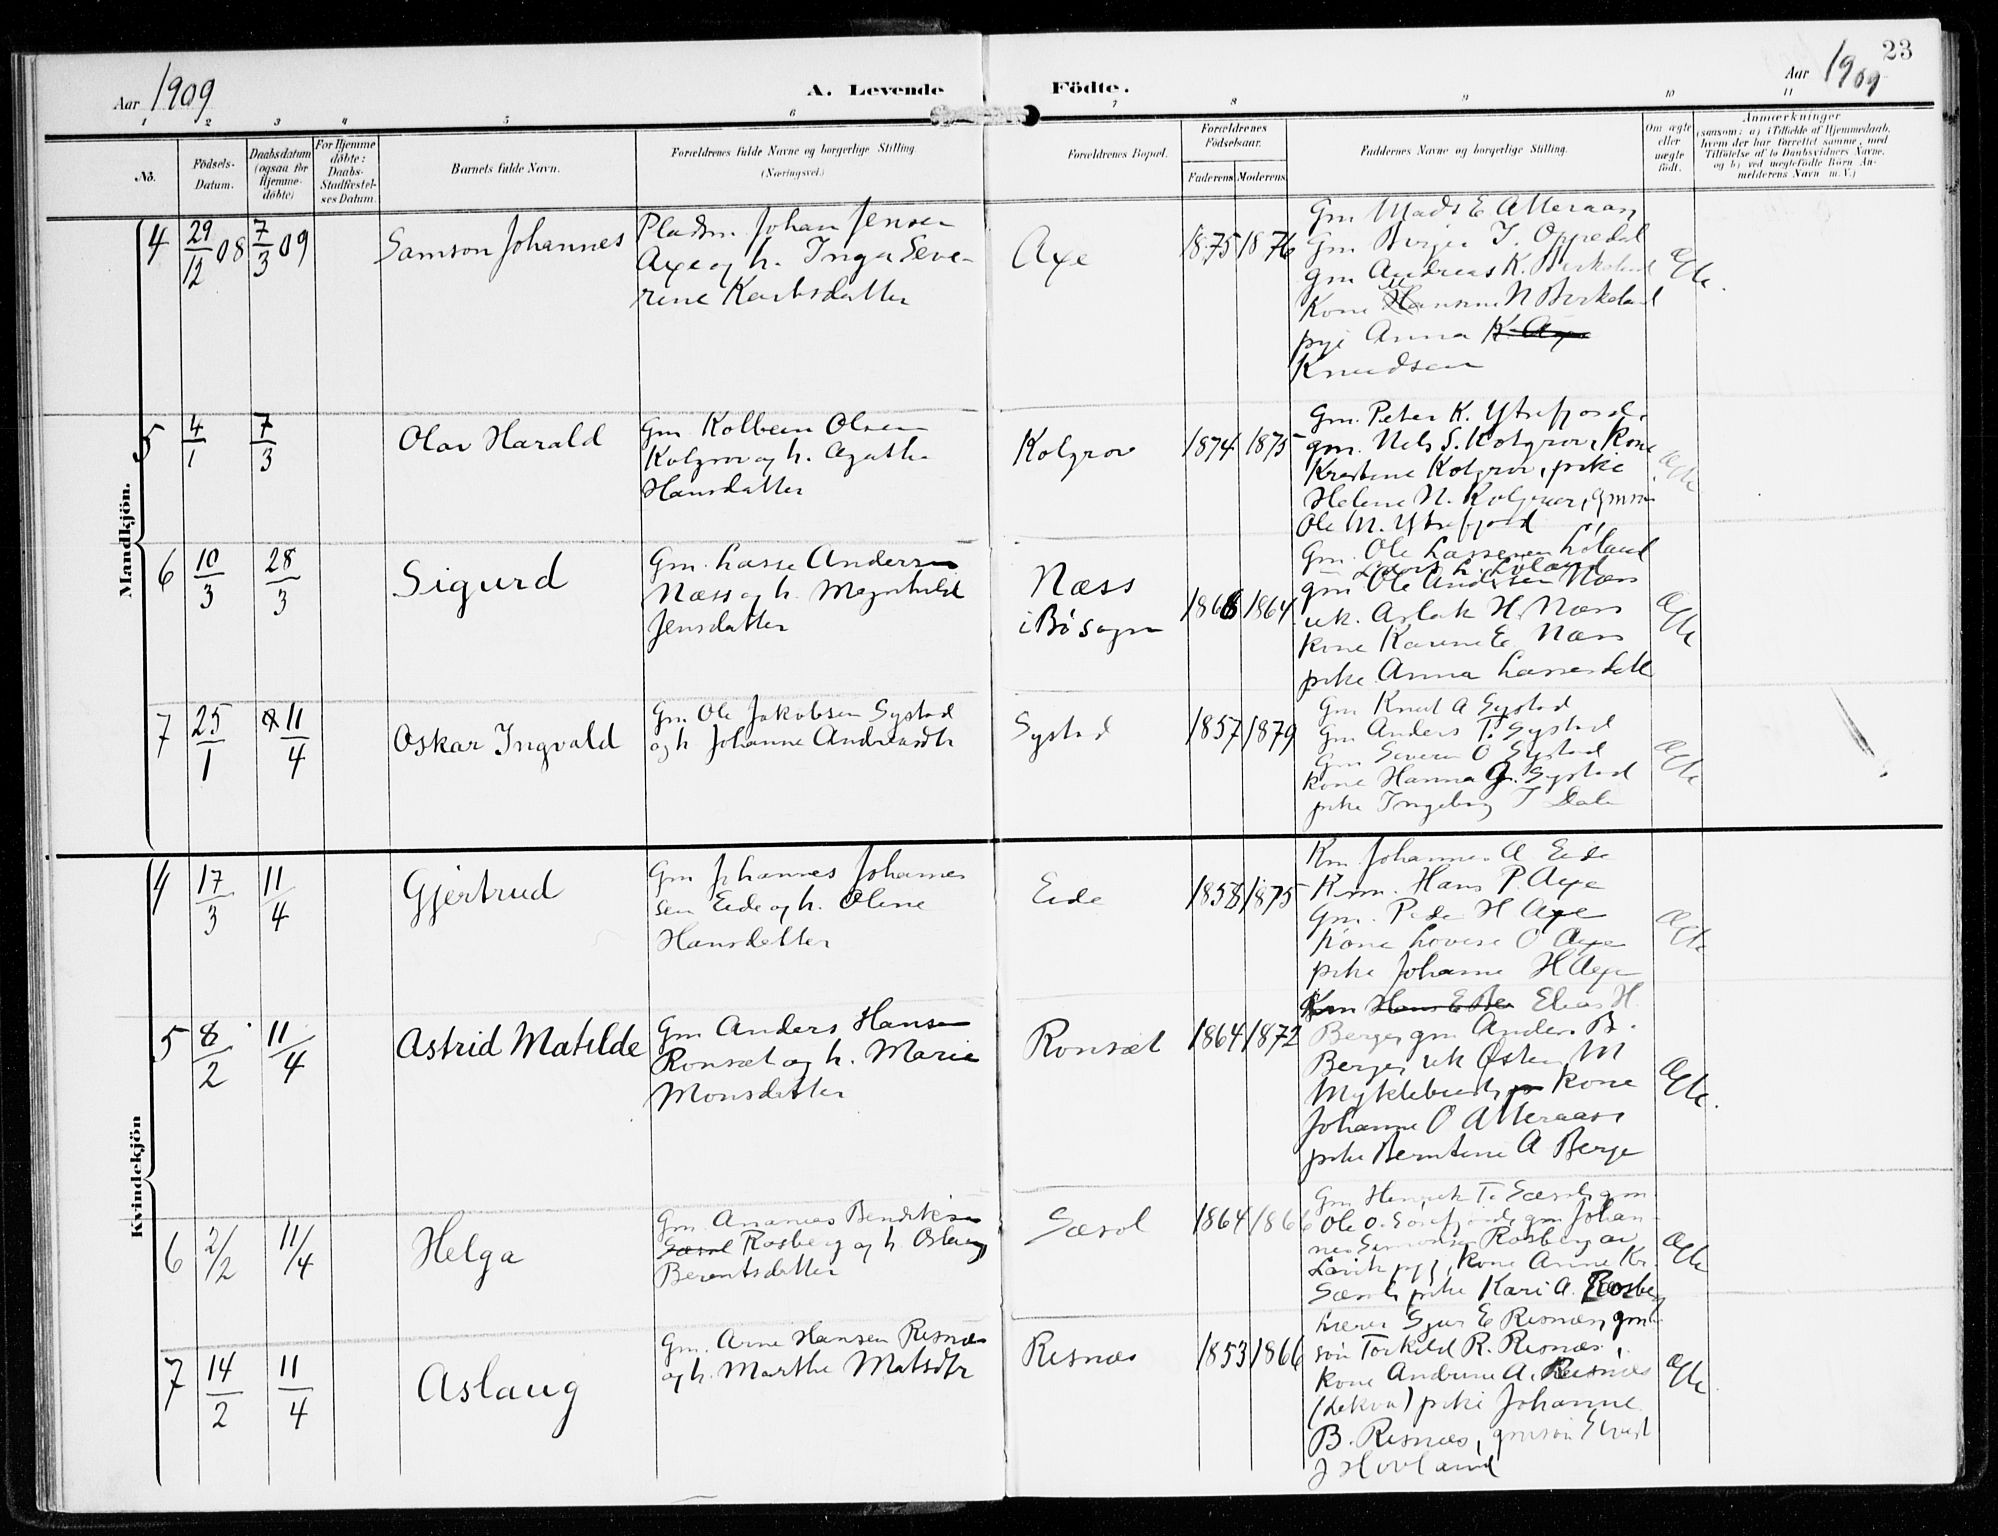 23
Aar 1909
A. Levende Födte.
Aar 1909
1 2 3 4 5 6 7 8 9 10 11
No.
Födsels-
Datum.
Daabsdatum
(ogsaa for
Hjemme-
döbte)
For Hjemme
döbte:
Daabs-
Stadfæstel-
ses Datum.
Barnets fulde Navn.
Forældrenes fulde Navne og borgerlige Stilling
(Næringsvei.)
Forældrenes Bopæl.
Forældrenes
Födselsaar.
Faderens Moderens
Faddernes Navne og borgerlige Stilling.
Om ægte
eller
uægte
födt.
Anmærkninger
(saasom: a) i Tilfælde af Hjemmedaab,
hvem der har forrettet samme, med
Tilföielse af to Daabsvidners Navne.
og b) ved uegtefödte Börn An-
melderens Navn m. V.)
Mandkjön.
4
29/12 08
7/3 09
Samson Johannes
Pladsm. Johan Jensen
Axe og h. Inga Seve-
rine Karlsdatter
Axe
1875 1876
Gm Mads E Alleraan
Gm Birger I. Oppedal
gm Andreas K. Birkeland
Kone Hansine N Birkeland
pige Anna K. Axe
Knudsen
ægte.
5
4/1
7/3
Olav Harald
Gm Kolbein Olsen
Kolgrov og h. Agathe
Hansdatter
Kolgrov
1874 1875
Gm. Peter K. Ytrefjord
gm. Nels S. Kolgrov, Kone
Kristine Kolgrov, pike
Helene N. Kolgrov, gmsøn
Ole M. Ytrefjord
ægte
6
10/3
28/3
Sigurd
Gm. Lasse Andersen
Næss og h. Magnhild
Jensdatter
Næss
i Bø sogn
1868 1864
Gm. Ole Lassesen Løland
gm Ole Andersen Næss
uk. Aslak H. Næss
kone Karine E. Næss
pike Anna Lassesdatt
ægte
7
25/1
11/4
Oskar Ingvald
Gm. Ole Jakobsen Systad
og h Johanne Andreasdtr
Systad
1857 1879
Gm Knut A Systad
Gm Anders T. Systad
Gm Severin O Systad
kone Hanna G. Systad
pike Ingeborg T Dale
ægte
Kvindekjön
4
17/3
11/4
Gjertrud
Gm Johannes Johannes
sen Eide og h. Oline
Hansdatter
Eide
1858 1875
Km. Johannes A Eide
Km. Hans P. Axe
Gm. Peder H Axe
Kone Lovise O Axe
pike Johanne H Axe
ægte
5
8/2
11/4
Astrid Matilde
Gm Anders Hansen
Ronsæt og h. Marie
Monsdatter
Ronsæt
1864 1872
Km Hans E Elias H.
Berge, gm Anders B.
Berge, uk Østen M
Myklebust, kone
Johanne O Alleraan
pike Berntine A Berge
ægte.
6
2/2
11/4
Helga
Gm. Ananias Bendiksen
Sæsol Rosberg og h. Oline
Berentsdatter
Sæsol
1864 1866
Gm Henrik T. Sæsol, gm
Ole O. Sørefjord, gm Johan-
nes Simonsen Rosberg av
Lavik pgj, kone Anne Kr.
Sæsol, pike Kari A. Rosberg
ægte
7
14/2
11/4
Aslaug
Gm. Arne Hansen Risnæs
og h. Marthe Matsdtr
Risnæs
1853 1866
Lærer Sjur E Risnæs, gm-
søn Torkild R. Risnæs,
kone Andrine A. Risnæs
(Lekva) pike Johanne
B. Risnæs, gmsøn
J Hovland
ægte